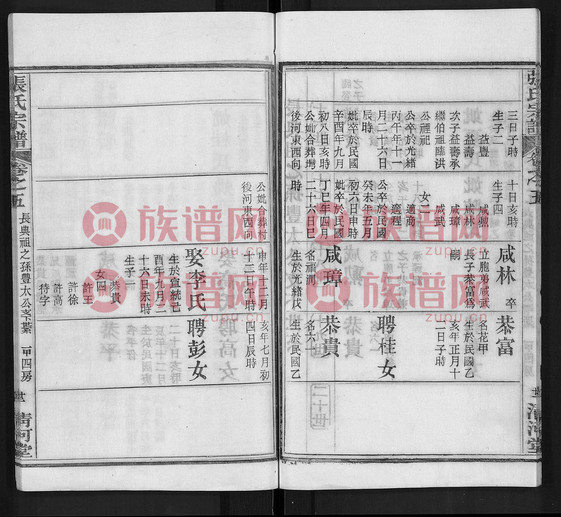 張氏宗譜
卷之五
清河堂
三日子時
生子二
益豐
益壽
次子益壽承
繼伯祖臨洪
公禋祀
公卒於光緒
丙午年十一
月二十六日
辰時
妣卒於民國
辛酉年九月
初八日亥時
公妣合葬灣
後河東西向
十日亥時
生子四
咸林
咸璋
咸武
女二
適商
適程
公卒於民國
癸未年五月
初六日申時
妣卒於民國
丁巳年四月
二十六日巳
時
公妣合葬灣
後河東西向
咸林
卒
立胞弟咸武
長子恭富為
嗣
咸璋
名頑潤
生於光緒戊
恭富
名花甲
生於民國乙
亥年正月十
一日子時
聘桂女
恭貴
名六十
生於民國乙
二十世
張氏宗譜
卷之五
長典祖之孫豐太公苓葉
一甲四房
清河堂
公妣合葬村
後河東西向
申年十二月
十二日午時
娶李氏
生於宣統己
酉年九月二
十六日未時
生子一
恭貴
女四
許王
許徐
許高
待字
亥年七月初
四日辰時
聘彭女
族谱网
zupu.cn